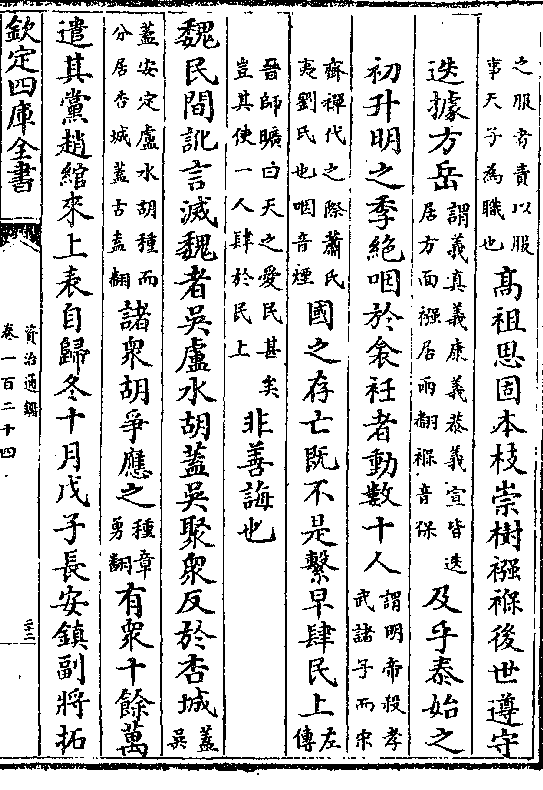 之服者責以服
事天子為職也
高祖思固本枝崇樹襁褓後世遵守
迭據方岳
謂義真義康義恭義宣皆迭
居方面襁居兩翻褓音保
及乎泰始之
初升明之季絕咽於衾衽者動數十人
謂明帝殺孝
武諸子而宋
齊禪代之際蕭氏
夷劉氏也咽音煙
國之存亡既不是繫早肆民上
左
傳
晉師曠曰天之愛民甚矣
豈其使一人肆於民上
非善誨也
魏民間訛言滅魏者吳盧水胡蓋吳聚衆反於杏城
蓋
吳
蓋安定盧水胡種而
分居杏城蓋古盍翻
諸衆胡爭應之
種章
勇翻
有衆十餘萬
遣其黨趙綰來上表自歸冬十月戊子長安鎮副將拓
欽定四庫全書
資治通鑑
卷一百二十四